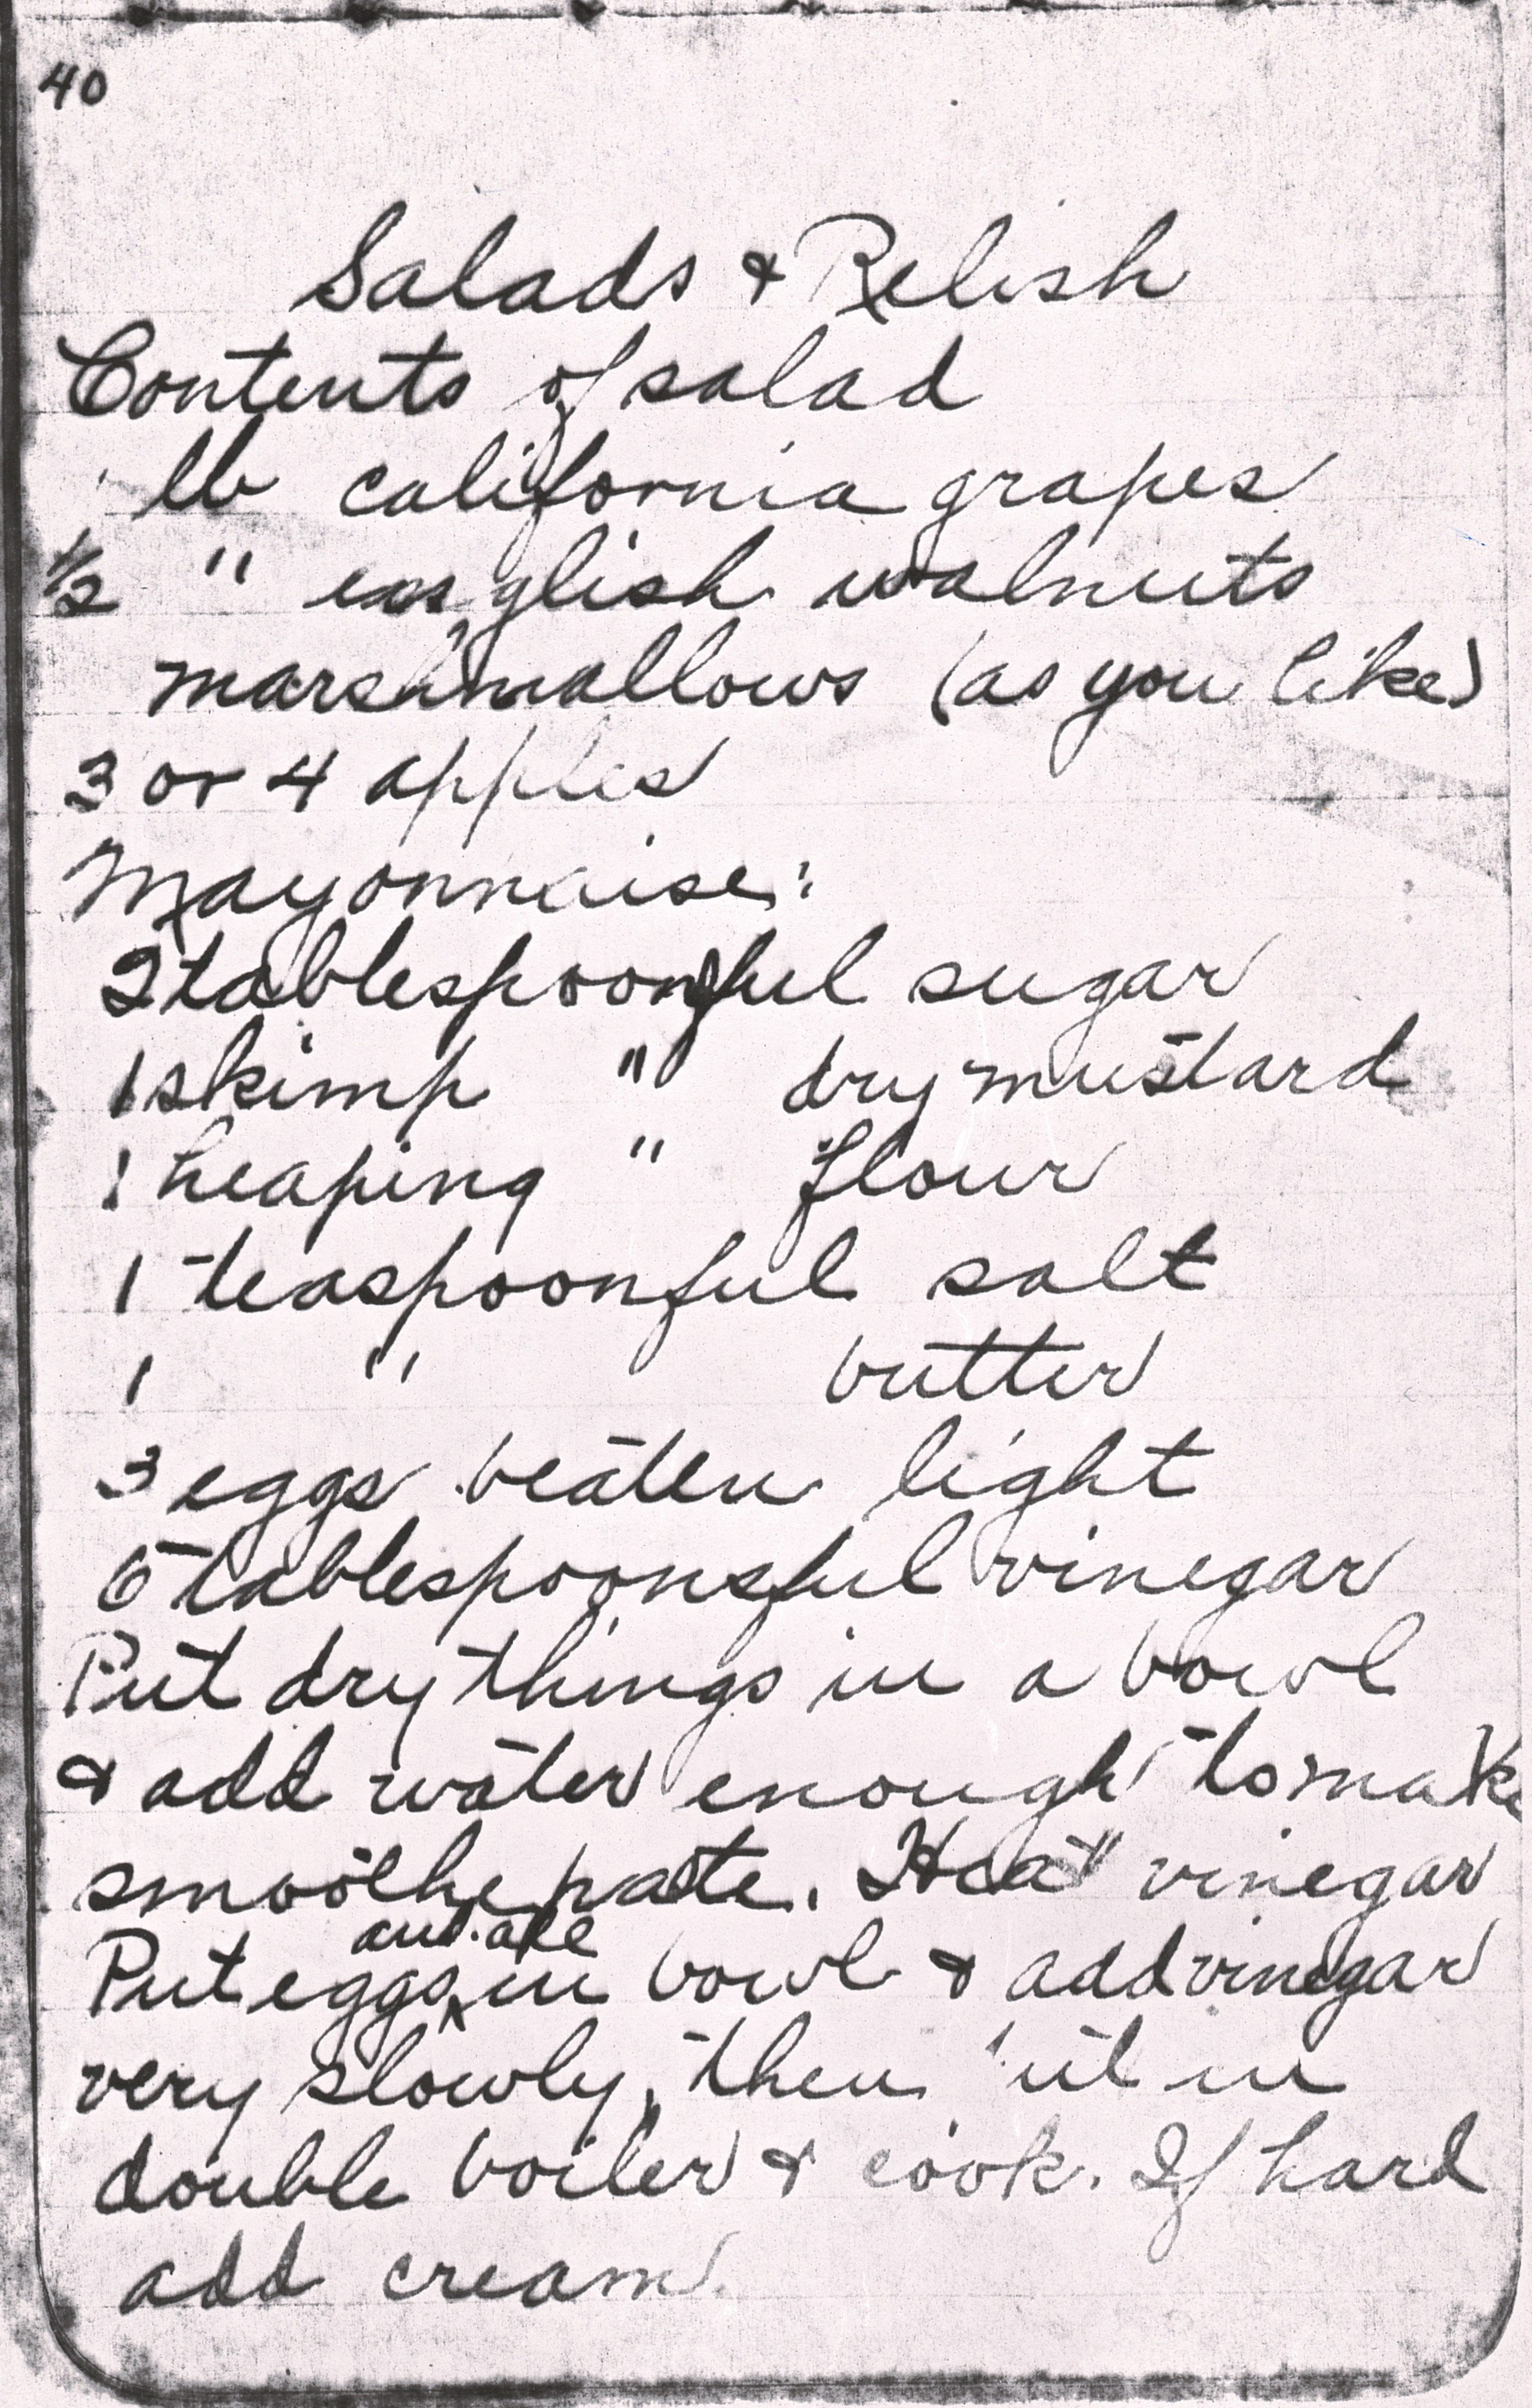 40
Salads & Relish
Contents of salad
lb california grapes
1/2 " english walnuts
marshmallows (as you like)
3 or 4 apples
Mayonnaise:
2 tablespoonful sugar
1 skimp " dry mustard
1 heaping " flour
1 teaspoonful salt
1 " butter
3 eggs beaten light
6 tablespoonsful vinegar
Put dry things in a bowl
& add water enough to make
smoothe paste. Heat vinegar
and all
Put eggs in bowl & add vinegar
very slowly, then in
double boiler & cook. If hard
add cream.